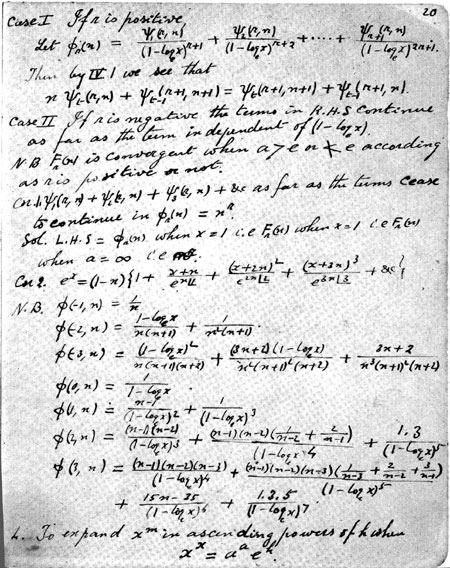 20
Case I If r is positive,
Let φ_r(n) = ψ_1(r,n)/(1-log_e x)^{r+1} + ψ_2(r,n)/(1-log_e x)^{r+2} + ..... + ψ_{r+1}(r,n)/(1-log_e x)^{2r+1}.
Then by IV 1 we see that
n ψ_t(r,n) + ψ_{t-1}(r+1,n+1) = ψ_t(r+1,n+1) + ψ_{t-1}(r+1,n).
Case II If r is negative the terms in R.H.S continue
as far as the term independent of (1-log_e x).
N.B F_r(n) is convergent when a > e or < e according
as r is positive or not.
Cor.1. ψ_1(r,n) + ψ_2(r,n) + ψ_3(r,n) + &c as far as the terms cease
to continue in φ_r(n) = n^r.
Sol. L.H.S = φ_r(n) when x = 1 i.e F_r(n) when x = 1 i.e F_r(n)
when a = ∞ i.e
Cor 2. e^x = (1-n){1 + (x+n)/(e^n ⌊1) + (x+2n)^2/(e^{2n} ⌊2) + (x+3n)^3/(e^{3n} ⌊3) + &c}
N.B. φ(-1, n) = 1/n
φ(-2, n) = (1-log_e x)/(n(n+1)) + 1/(n^2(n+1)).
φ(-3, n) = (1-log_e x)^2/(n(n+1)(n+2)) + (3n+2)(1-log_e x)/(n^2(n+1)^2(n+2)) + (3n+2)/(n^3(n+1)^2(n+2))
φ(0, n) = 1/(1-log_e x).
φ(1, n) = (n-1)/(1-log_e x)^2 + 1/(1-log_e x)^3
φ(2, n) = (n-1)(n-2)/(1-log_e x)^3 + (n-1)(n-2)(1/(n-2) + 2/(n-1))/(1-log_e x)^4 + 1.3/(1-log_e x)^5
φ(3, n) = (n-1)(n-2)(n-3)/(1-log_e x)^4 + (n-1)(n-2)(n-3)(1/(n-3) + 2/(n-2) + 3/(n-1))/(1-log_e x)^5
+ (15n-35)/(1-log_e x)^6 + 1.3.5/(1-log_e x)^7.
4. To expand x^m in ascending powers of h when
x^x = a^a e^h.